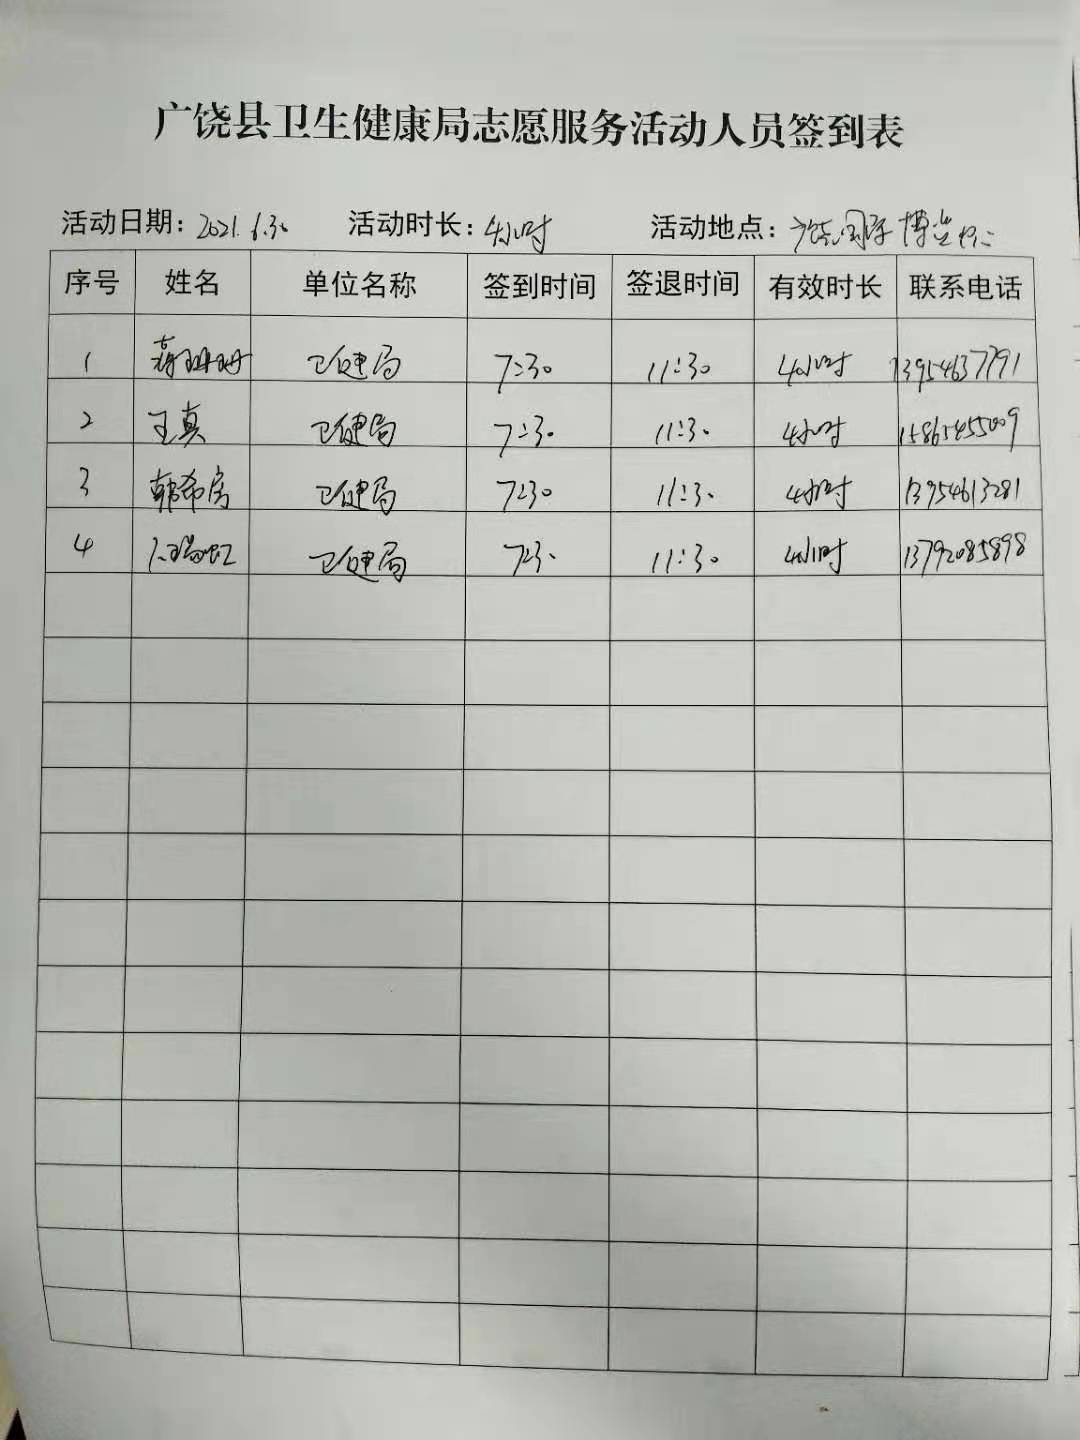 广饶县卫生健康局志愿服务活动人员签到表
活动日期：2021.6.30 活动时长：4小时 活动地点：广饶国际博览中心
序号 姓名 单位名称 签到时间 签退时间 有效时长 联系电话
1 蒋珊珊 卫健局 7:30 11:30 4小时 13954637791
2 王真 卫健局 7:30 11:30 4小时 15865455009
3 韩希房 卫健局 7:30 11:30 4小时 13954613281
4 卫健局 7:30 11:30 4小时 13792085898